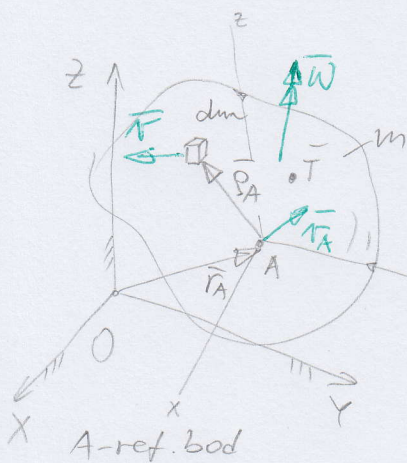 z
Z
ω̅
dm
m
v̅
ρ̅_A
T̅
v̅_A
r̅_A
A
O
X
x
Y
A-ref. bod